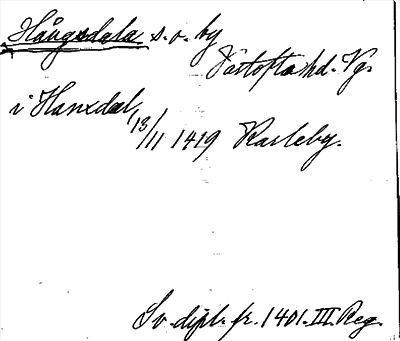 Hångsdala s. o. by
Vartofta hd. Vg.
i Hanxdal, 13/11 1419 Karleby.
Sv. dipl. fr. 1401. III. Reg.